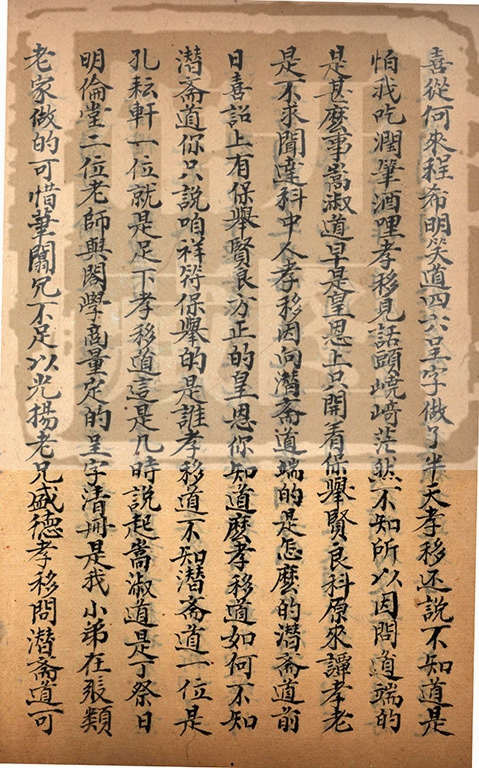 喜從何來程希明笑道四六呈字做了半天孝移还說不知道是
怕我吃潤筆酒哩孝移見話頭嶢崎茫然不知所以因問道端的
是甚麽事嵩淑道早是皇恩上只開着保舉賢良科原來譚孝老
是不求聞達科中人孝移因向潜斋道端的是怎麽的潜斋道前
日喜詔上有保舉賢良方正的皇恩你知道麽孝移道如何不知
潜斋道你只說咱祥符保舉的是誰孝移道不知潜斋道一位是
孔耘軒一位就是足下孝移道這是几時說起嵩淑道是丁祭日
明倫堂二位老師與閤學商量定的呈字清冊是我小弟在張類
老家做的可惜筆闒冗不足以光揚老兄盛德孝移問潜斋道可